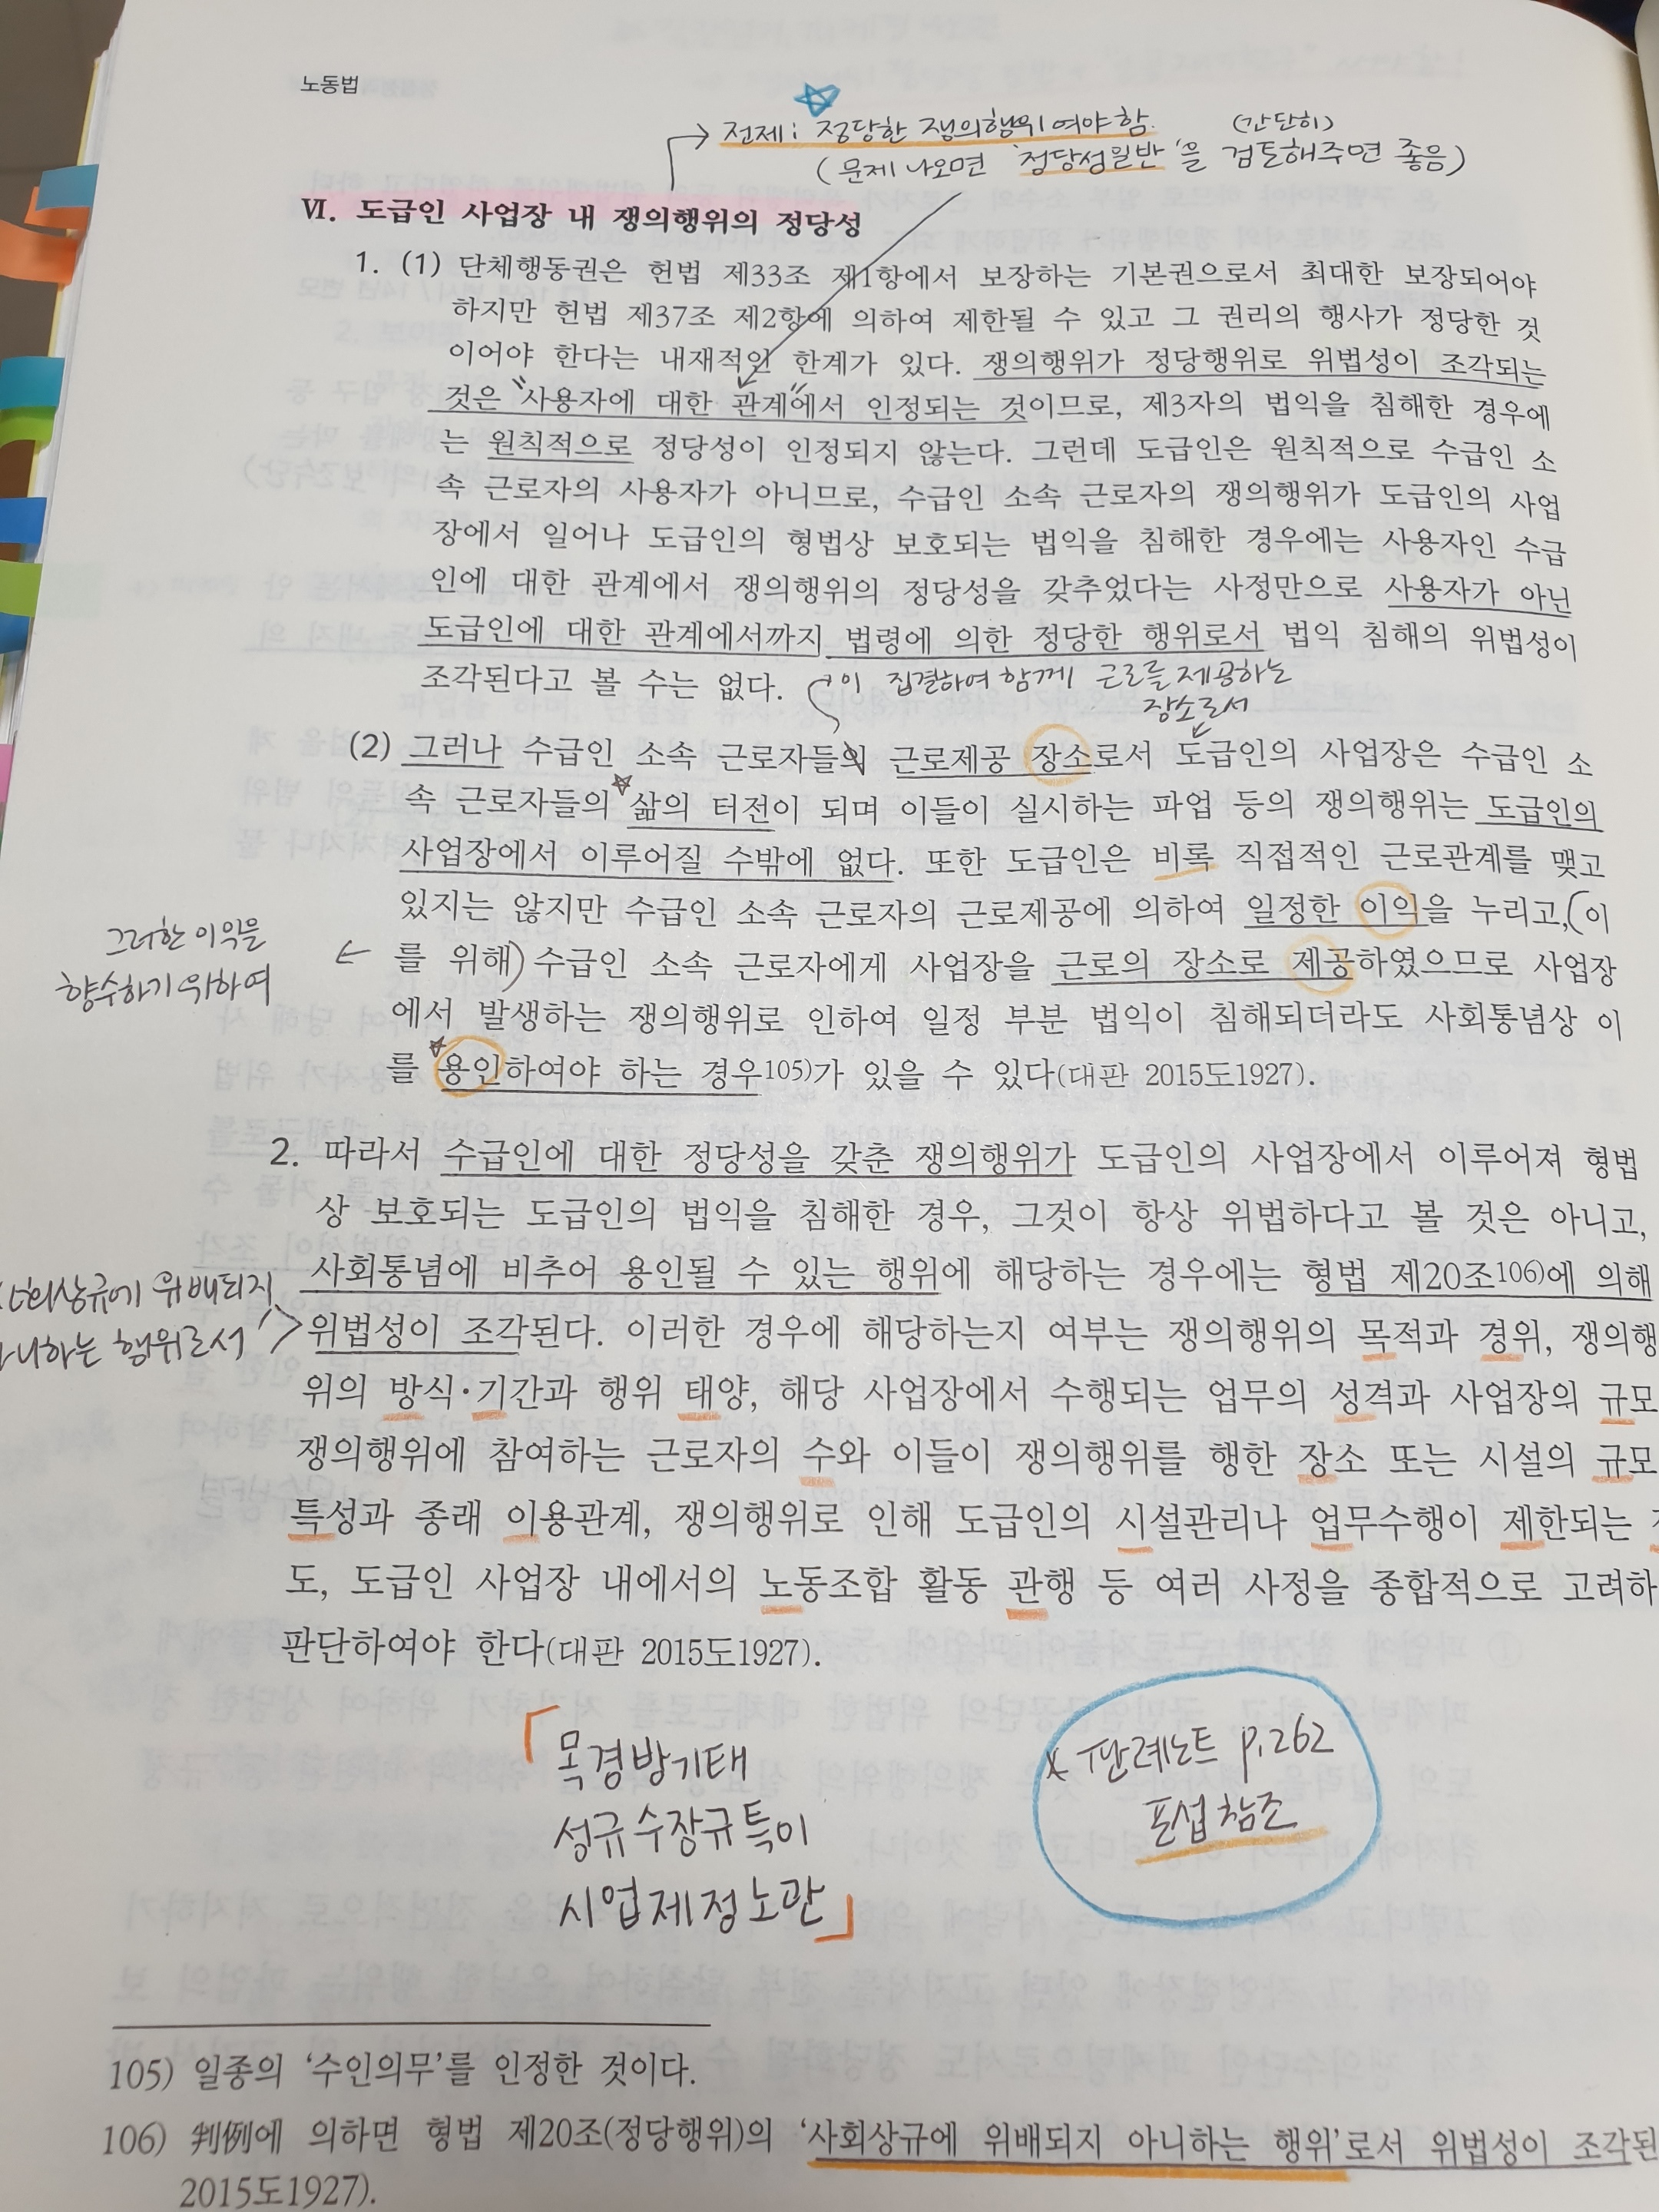 노동법
→ 전제 : 정당한 쟁의행위여야 함.
(간단히)
( 문제 나오면 '정당성일반'을 검토해주면 좋음)
Ⅵ. 도급인 사업장 내 쟁의행위의 정당성
1. (1) 단체행동권은 헌법 제33조 제1항에서 보장하는 기본권으로서 최대한 보장되어야
하지만 헌법 제37조 제2항에 의하여 제한될 수 있고 그 권리의 행사가 정당한 것
이어야 한다는 내재적인 한계가 있다. 쟁의행위가 정당행위로 위법성이 조각되는
것은 "사용자에 대한 관계"에서 인정되는 것이므로, 제3자의 법익을 침해한 경우에
는 원칙적으로 정당성이 인정되지 않는다. 그런데 도급인은 원칙적으로 수급인 소
속 근로자의 사용자가 아니므로, 수급인 소속 근로자의 쟁의행위가 도급인의 사업
장에서 일어나 도급인의 형법상 보호되는 법익을 침해한 경우에는 사용자인 수급
인에 대한 관계에서 쟁의행위의 정당성을 갖추었다는 사정만으로 사용자가 아닌
도급인에 대한 관계에서까지 법령에 의한 정당한 행위로서 법익 침해의 위법성이
조각된다고 볼 수는 없다.
이 집결하여 함께 근로를 제공하는
장소로서
(2) 그러나 수급인 소속 근로자들의 근로제공 장소로서 도급인의 사업장은 수급인 소
속 근로자들의 삶의 터전이 되며 이들이 실시하는 파업 등의 쟁의행위는 도급인의
사업장에서 이루어질 수밖에 없다. 또한 도급인은 비록 직접적인 근로관계를 맺고
있지는 않지만 수급인 소속 근로자의 근로제공에 의하여 일정한 이익을 누리고,(이
그러한 이익을
향수하기 위하여
← 를 위해) 수급인 소속 근로자에게 사업장을 근로의 장소로 제공하였으므로 사업장
에서 발생하는 쟁의행위로 인하여 일정 부분 법익이 침해되더라도 사회통념상 이
를 용인하여야 하는 경우105)가 있을 수 있다(대판 2015도1927).
2. 따라서 수급인에 대한 정당성을 갖춘 쟁의행위가 도급인의 사업장에서 이루어져 형법
상 보호되는 도급인의 법익을 침해한 경우, 그것이 항상 위법하다고 볼 것은 아니고,
사회통념에 비추어 용인될 수 있는 행위에 해당하는 경우에는 형법 제20조106)에 의해
사회상규에 위배되지
아니하는 행위로서
위법성이 조각된다. 이러한 경우에 해당하는지 여부는 쟁의행위의 목적과 경위, 쟁의행
위의 방식·기간과 행위 태양, 해당 사업장에서 수행되는 업무의 성격과 사업장의 규모
쟁의행위에 참여하는 근로자의 수와 이들이 쟁의행위를 행한 장소 또는 시설의 규모
특성과 종래 이용관계, 쟁의행위로 인해 도급인의 시설관리나 업무수행이 제한되는
도, 도급인 사업장 내에서의 노동조합 활동 관행 등 여러 사정을 종합적으로 고려하
판단하여야 한다(대판 2015도1927).
「목경방기태
성규수장규특이
시업제정노관」
* 판례노트 p.262
포섭 참조
105) 일종의 '수인의무'를 인정한 것이다.
106) 判例에 의하면 형법 제20조(정당행위)의 '사회상규에 위배되지 아니하는 행위'로서 위법성이 조각된
2015도1927).